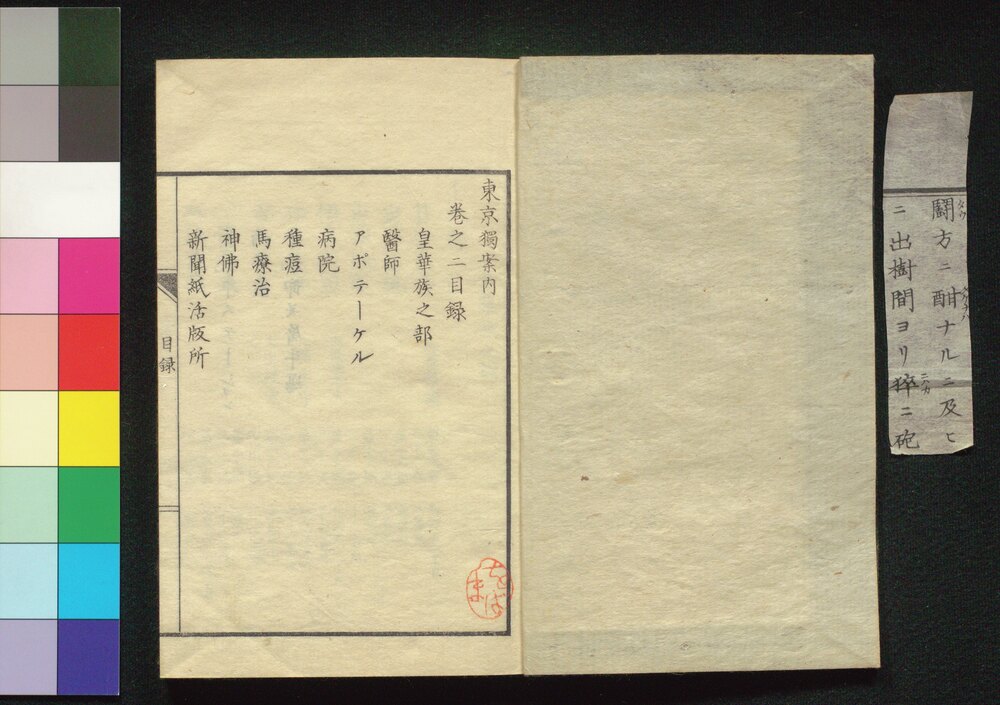 鬪方ニ酣ナルニ及ヒ
ニ出樹間ヨリ猝ニ砲
東京獨案内
卷之二目録
皇華族之部
醫師
アポテーケル
病院
種痘
馬療治
神佛
新聞紙活版所
目録